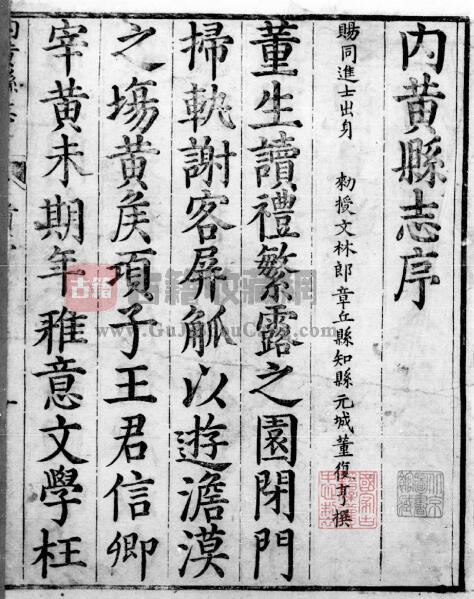 內黃縣志序
賜同進士出身 勑授文林郎章丘縣知縣元城董復亨撰
董生讀禮繁露之園閉門
掃軌謝客屏觚以遊澹漠
之場黃矦項子王君信卿
宰黃未期年雅意文學枉
古籍
古籍收藏網